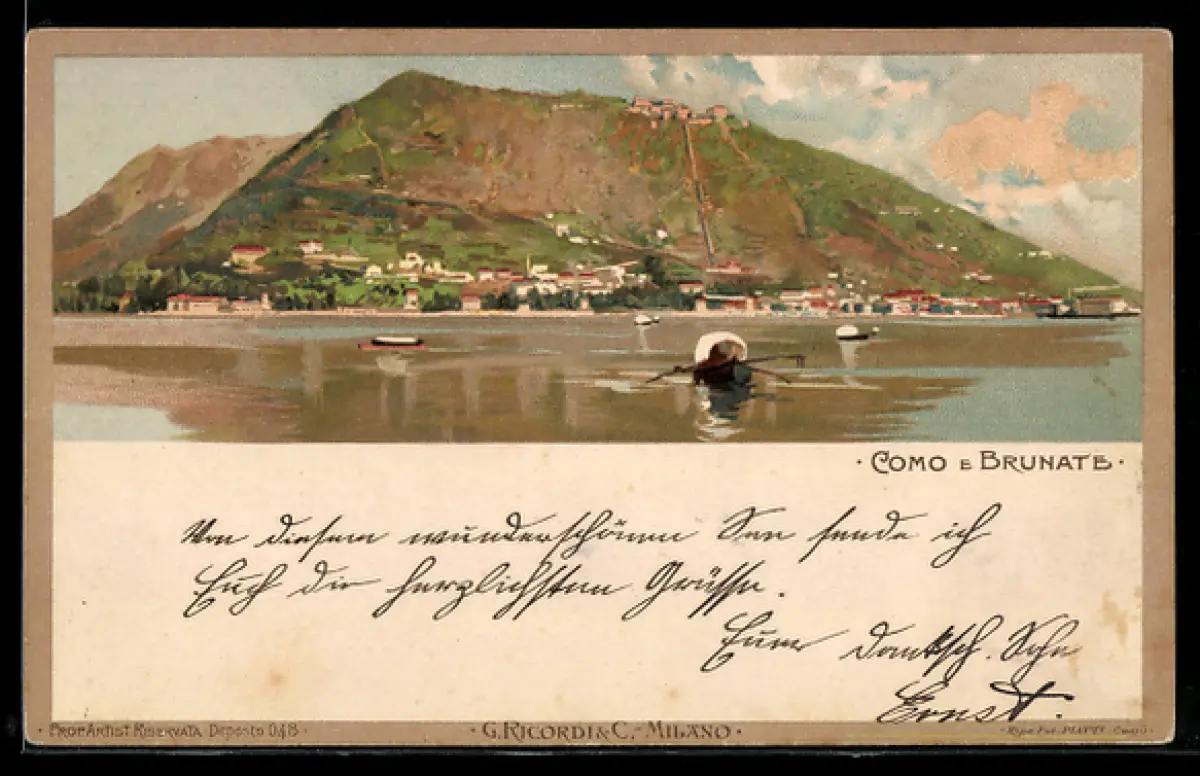 · COMO E BRUNATE ·
Von diesem wunderschönen See sende ich
Euch die herzlichsten Grüsse.
Euer dankb. Sohn
Ernst.
· PROP. ARTIST. RISERVATA. Deposto 048 ·
· G. RICORDI & C. - MILANO ·